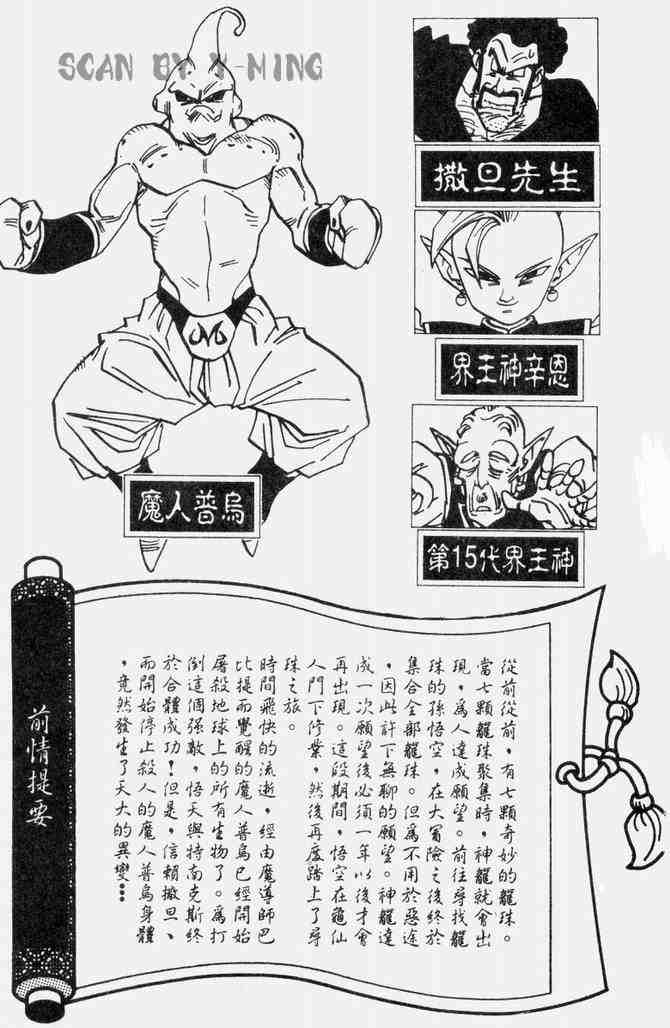 SCAN BY Y-MING
撒旦先生
界王神辛恩
第15代界王神
魔人普烏
前情提要
從前從前，有七顆奇妙的龍珠。
當七顆龍珠聚集時，神龍就會出
現，為人達成願望。前往尋找龍
珠的孫悟空，在大冒險之後終於
集合全部龍珠。但為不用於惡途
，因此許下無聊的願望。神龍達
成一次願望後必須一年以後才會
再出現。這段期間，悟空在龜仙
人門下修業，然後再度踏上了尋
珠之旅。
時間飛快的流逝，經由魔導師巴
比提而覺醒的魔人普烏已經開始
屠殺地球上的所有生物了。為打
倒這個強敵，悟天與特南克斯終
於合體成功！但是，信賴撒旦、
而開始停止殺人的魔人普烏身體
，竟然發生了天大的異變…